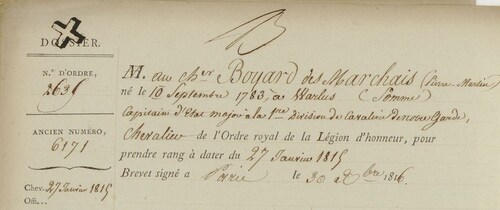 B
DOSSIER.
N.º D'ORDRE,
2635
ANCIEN NUMÉRO,
6171
Chev. 27 Janvier 1815
Offi...
M. au Ch.er Bogard des Marchais (Pierre Martin)
né le 10 Septembre 1783, à Warlus (Somme)
Capitaine d'Etat major à la 1.re Division de Cavalerie de notre Garde,
Chevalier de l'Ordre royal de la Légion d'honneur, pour
prendre rang à dater du 27 Janvier 1815
Brevet signé à Paris le 30 8bre 1816.